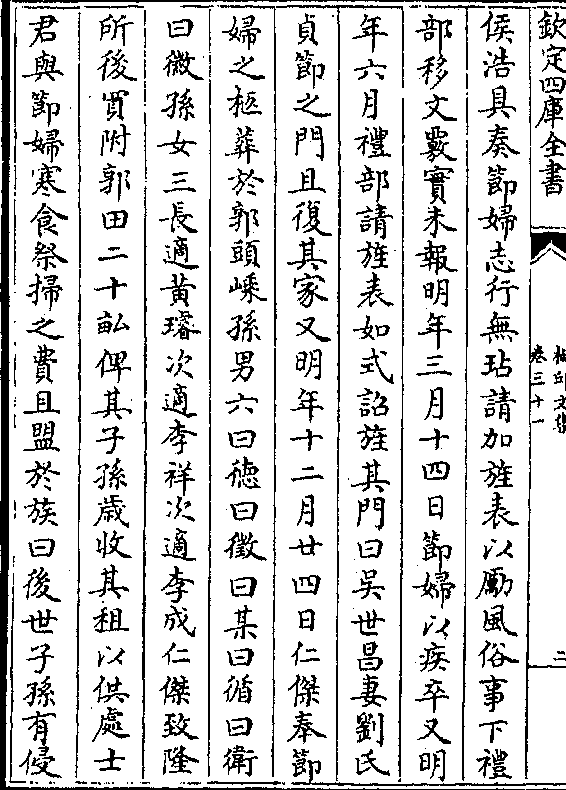 欽定四庫全書
卷三十一
侯浩具奏節婦志行無玷請加旌表以勵風俗事下禮
部移文覈實未報明年三月十四日節婦以疾卒又明
年六月禮部請旌表如式詔旌其門曰吳世昌妻劉氏
貞節之門且復其家又明年十二月廿四日仁傑奉節
婦之柩葬於郭頭嵊孫男六曰徳曰徵曰某曰循曰衛
曰微孫女三長適黄璿次適李祥次適李成仁傑致隆
所後買附郭田二十畝俾其子孫歳收其租以供處士
君與節婦寒食祭掃之費且盟於族曰後世子孫有侵